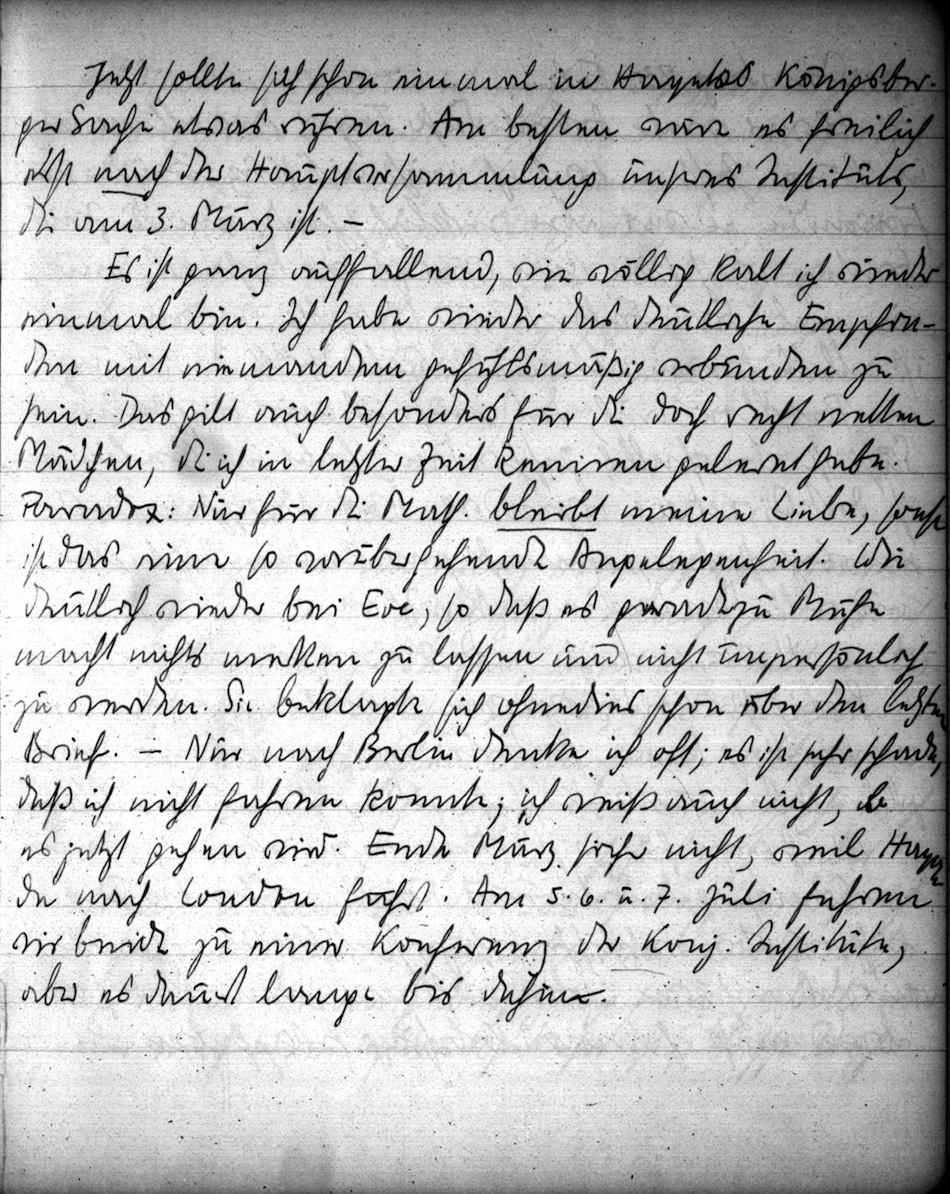 Jetzt sollte sich schon einmal in Hayeks Königsber-
ger Sache etwas rühren. Am besten wäre es freilich
erst nach der Hauptversammlung unseres Instituts,
die am 3. März ist. –
Es ist ganz auffallend, wie völlig kalt ich wieder
einmal bin. Ich habe wieder das deutliche Empfin-
den mit niemandem gefühlsmäßig verbunden zu
sein. Das gilt auch besonders für die doch recht netten
Mädchen, die ich in letzter Zeit kennen gelernt habe.
Paradox: Nur für die Math. bleibt meine Liebe, sonst
ist das eine so vorübergehende Angelegenheit. Wie
deutlich wieder bei Eve, so daß es geradezu Mühe
macht nichts merken zu lassen und nicht unpersönlich
zu werden. Sie beklagte sich ohnedies schon über den letzten
Brief. – Nur nach Berlin denke ich oft; es ist sehr schade,
daß ich nicht fahren konnte; ich weiß auch nicht, ob
es jetzt gehen wird. Ende März sicher nicht, weil Hayek
da nach London fährt. Am 5. 6. u. 7. Juli fahren
wir beide zu einer Konferenz der Konj. Institute,
aber es dauert lange bis dahin.